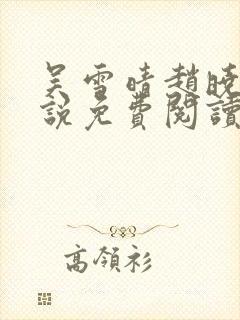 吴雪晴趙曉
說免費閱讀
高領衫